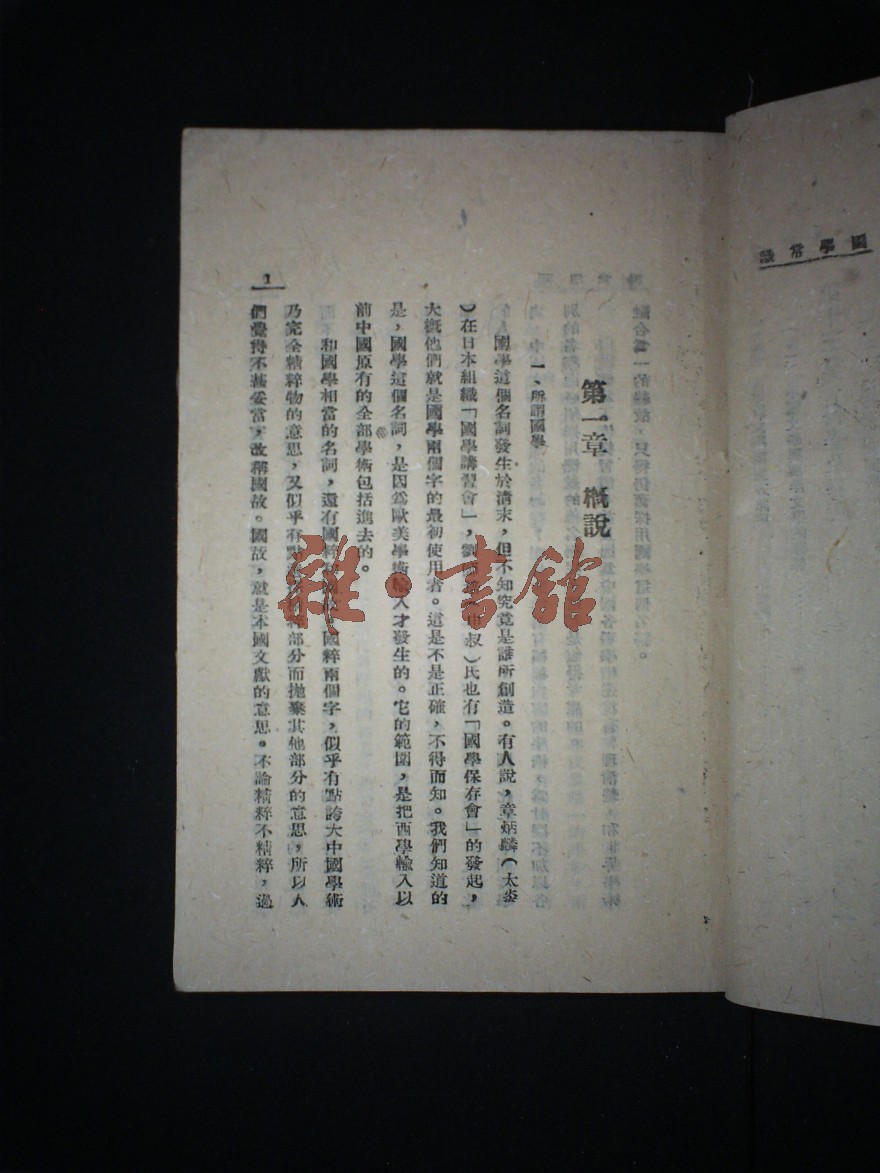 國學常識
第一章 概說
一、所謂國學
國學這個名詞發生於清末，但不知究竟是誰所創造。有人說，章炳麟（太炎
）在日本組織「國學講習會」，劉 申叔）氏也有「國學保存會」的發起，
大概他們就是國學兩個字的最初使用者。這是不是正確，不得而知。我們知道的
是，國學這個名詞，是因爲歐美學術輸入才發生的。它的範圍，是把西學輸入以
前中國原有的全部學術包括進去的。
和國學相當的名詞，還有國粹 國粹兩個字，似乎有點誇大中國學術
乃完全精粹物的意思，又似乎有點 精粹部分而拋棄其他部分的意思，所以人
們覺得不甚妥當，改稱國故。國故，就是本國文獻的意思。不論精粹不精粹，過
1
雜·書館